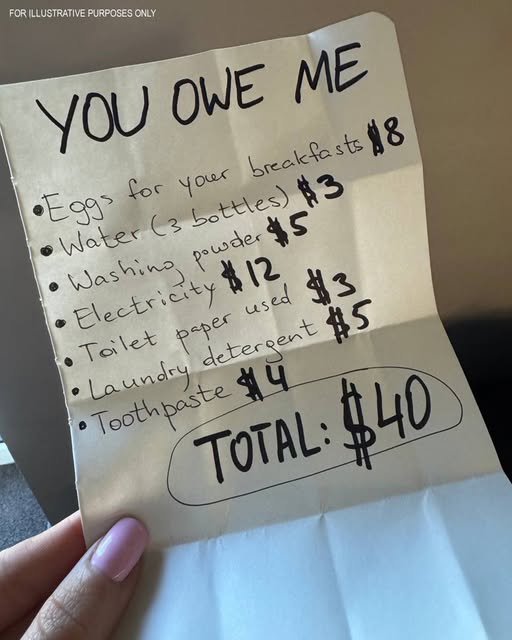 FOR ILLUSTRATIVE PURPOSES ONLY
YOU OWE ME
• Eggs for your breakfasts $8
• Water (3 bottles) $3
• Washing powder $5
• Electricity $12
• Toilet paper used $3
• Laundry detergent $5
• Toothpaste $4
TOTAL: $40